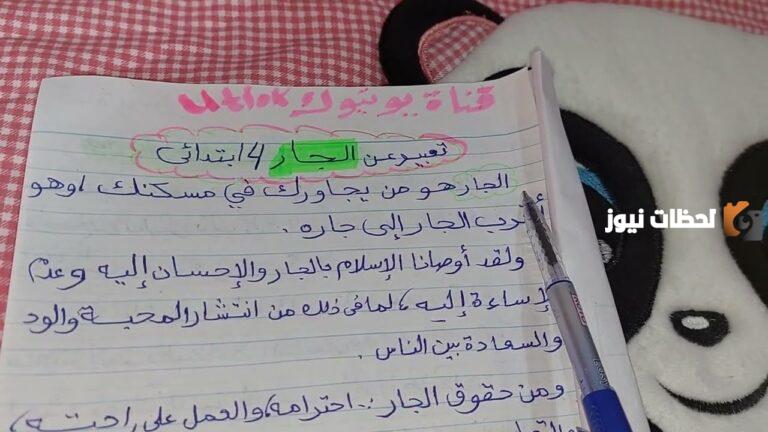 قناة يوتيوب utlok
تعبير عن الجار 4 ابتدائى
الجار هو من يجاورك في مسكنك، وهو
أقرب الجار إلى جاره.
ولقد أوصانا الإسلام بالجار والإحسان إليه وعدم
لإساءة إليه، لما فى ذلك من انتشار المحبة والود
والسعادة بين الناس.
ومن حقوق الجار: احترامه، والعمل على راحته،
لحظات نيوز